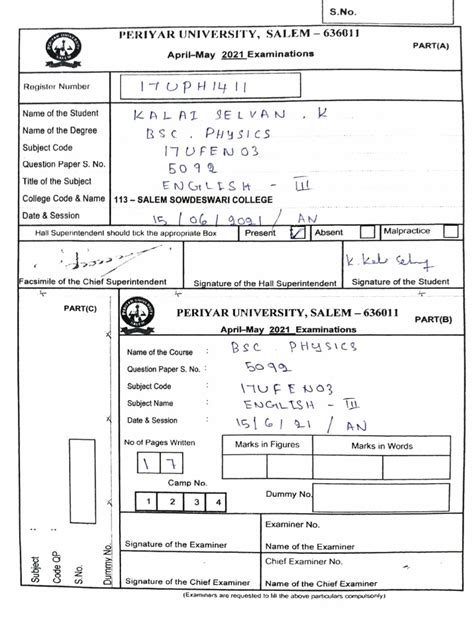 S.No.
PERIYAR UNIVERSITY, SALEM – 636011
PART(A)
April–May 2021 Examinations
Register Number 17UPH1411
Name of the Student KALAI SELVAN . K
Name of the Degree BSC . PHYSICS
Subject Code 17UFEN03
Question Paper S. No. 5092
Title of the Subject ENGLISH – III
College Code & Name 113 – SALEM SOWDESWARI COLLEGE
Date & Session 15 / 06 / 2021 / AN
Hall Superintendent should tick the appropriate Box Present ✓ Absent Malpractice
Facsimile of the Chief Superintendent Signature of the Hall Superintendent Signature of the Student
PART(C)
PERIYAR UNIVERSITY, SALEM – 636011
PART(B)
April–May 2021 Examinations
Name of the Course : BSC . PHYSICS
Question Paper S. No. : 5092
Subject Code : 17UFEN03
Subject Name : ENGLISH – III
Date & Session : 15/6/21 / AN
No of Pages Written Marks in Figures Marks in Words
1 7
Camp No.
1 2 3 4
Dummy No.
Examiner No.
Signature of the Examiner Name of the Examiner
Chief Examiner No.
Signature of the Chief Examiner Name of the Chief Examiner
(Examiners are requested to fill the above particulars compulsorily)
Subject
Code QP
S.No.
Dummy No.